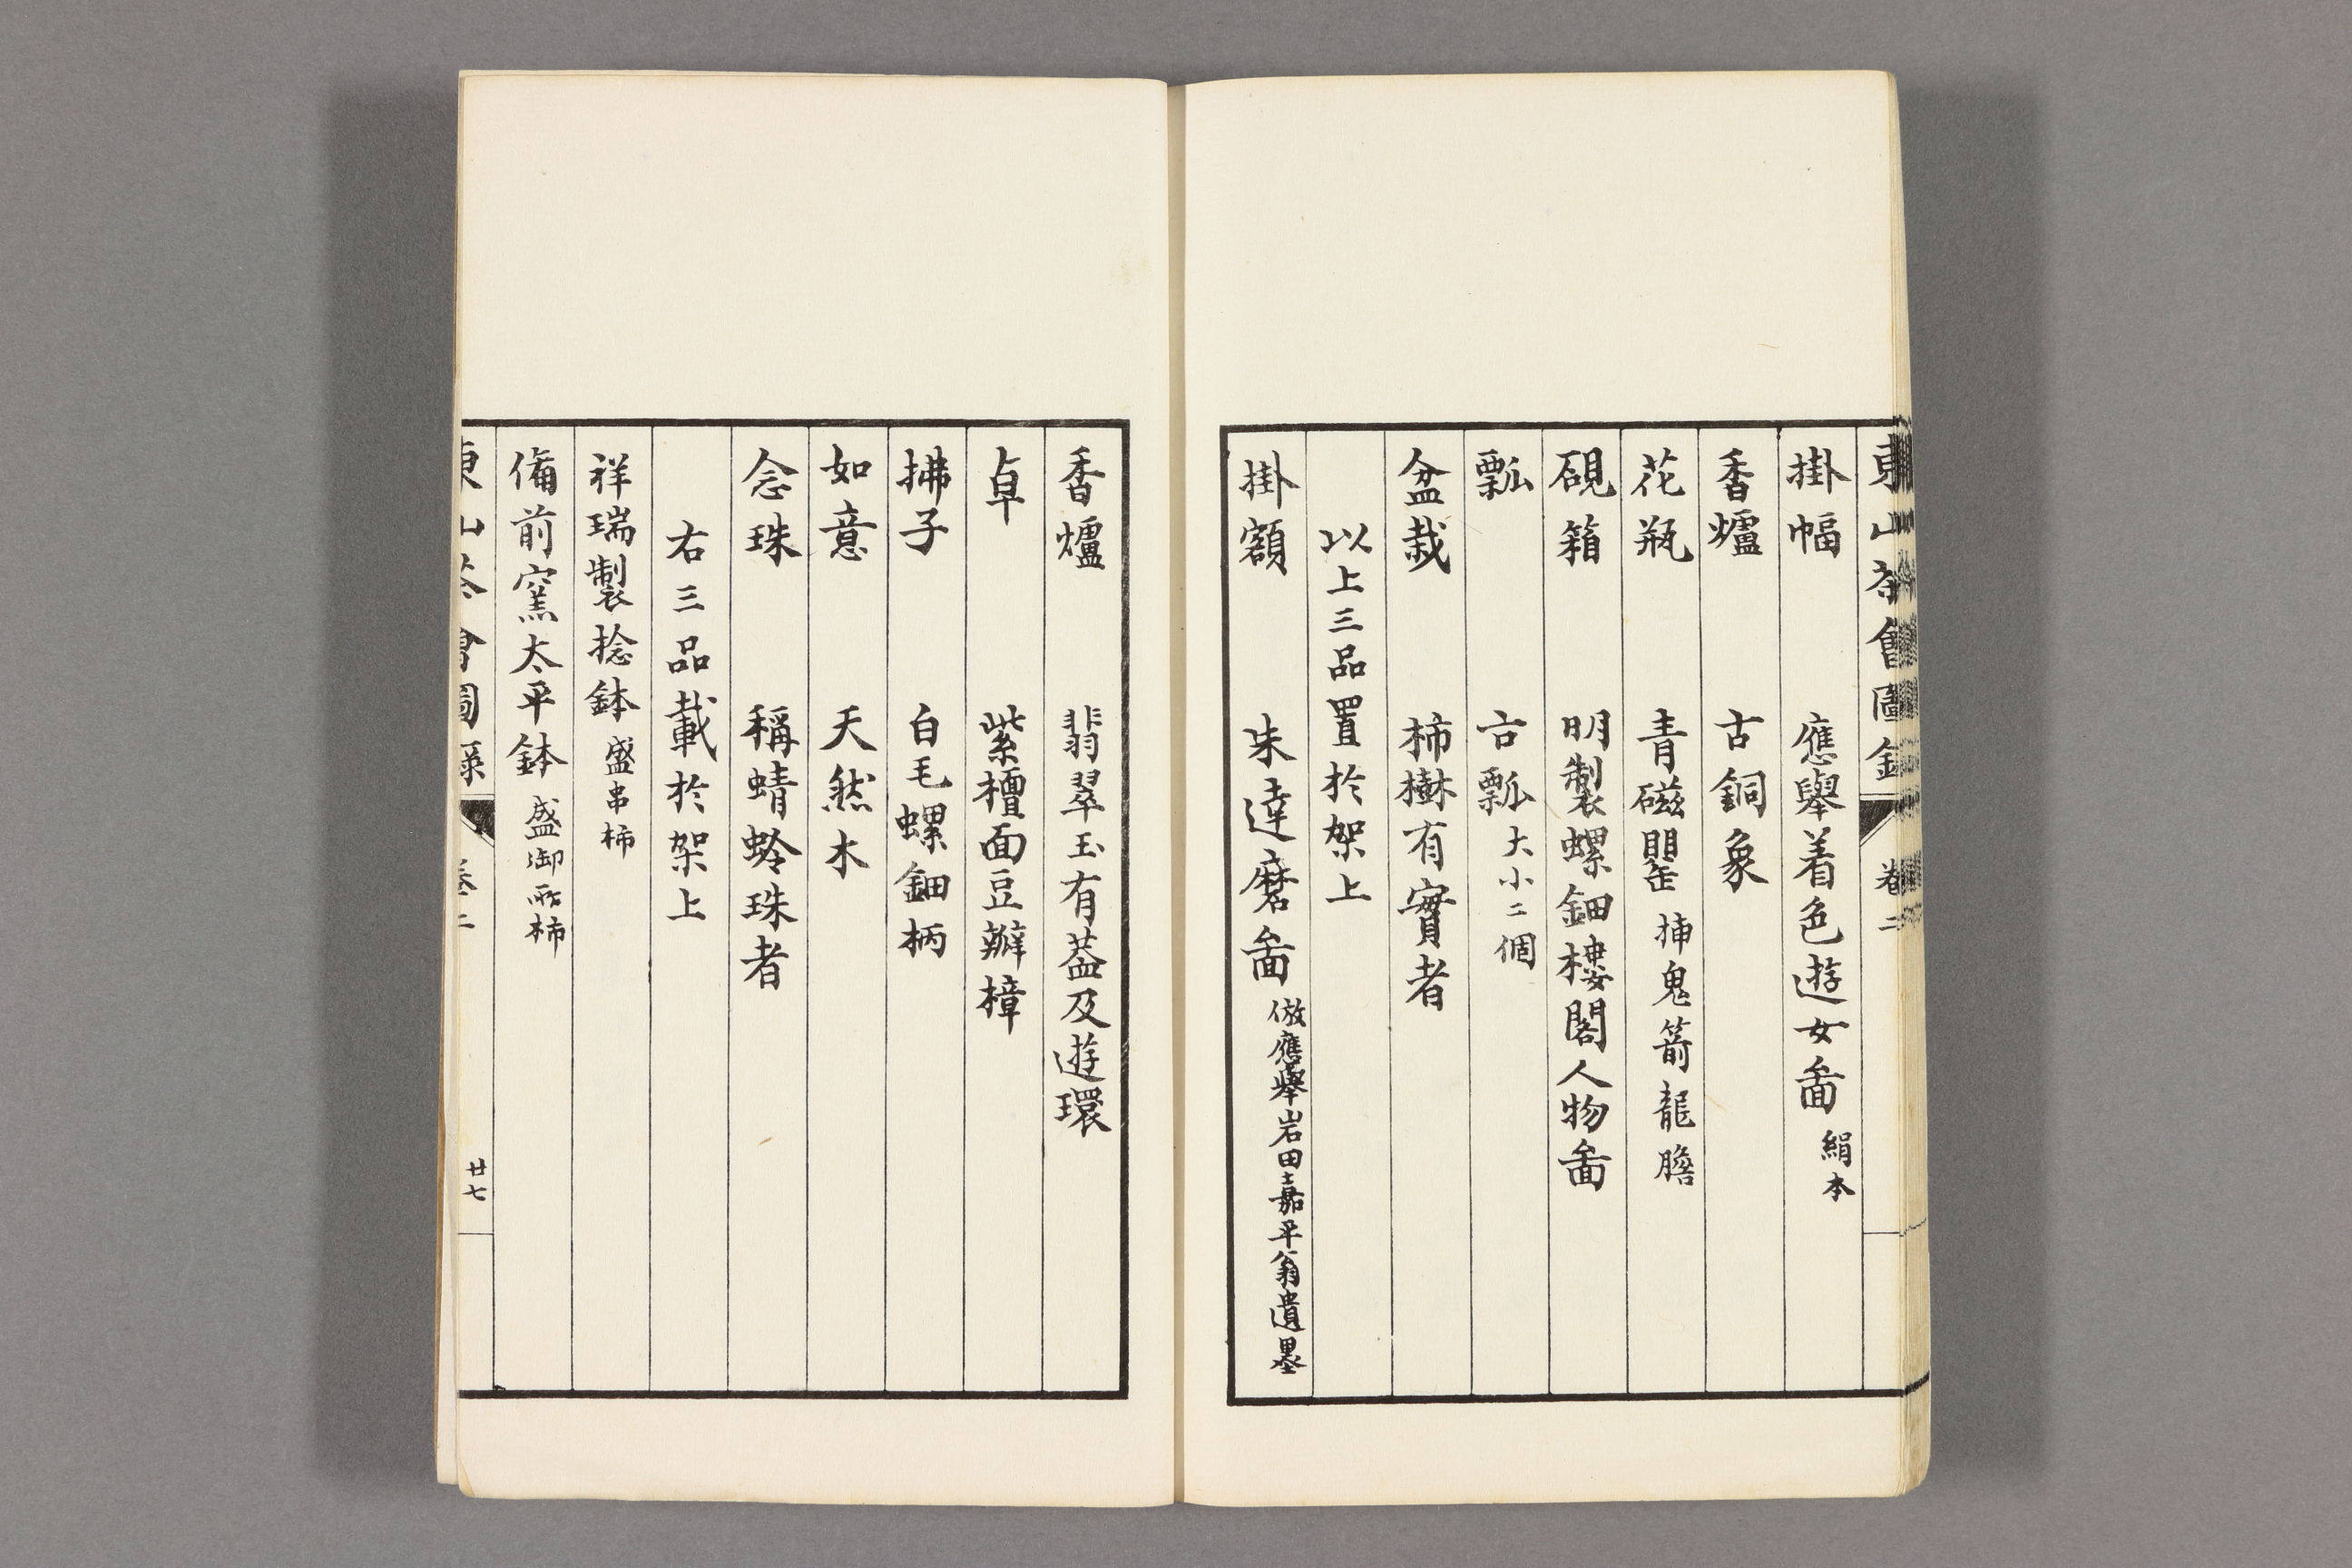 東山茶會圖錄 卷二
掛幅 應舉着色遊女畵 絹本
香爐 古銅象
花瓶 青磁罌 揷鬼箭龍膽
硯箱 明製螺鈿樓閣人物畵
瓢 古瓢 大小二個
盆栽 柿樹有實者
以上三品置於架上
掛額 朱達磨畵 倣應擧岩田嘉平翁遺墨
香爐 翡翠玉有葢及遊環
卓 紫檀面豆瓣樟
拂子 白毛螺鈿柄
如意 天然木
念珠 稱蜻蛉珠者
右三品載於架上
祥瑞製捻鉢 盛串柿
備前窯太平鉢 盛御所柿
東山茶會圖錄 卷二 廿七